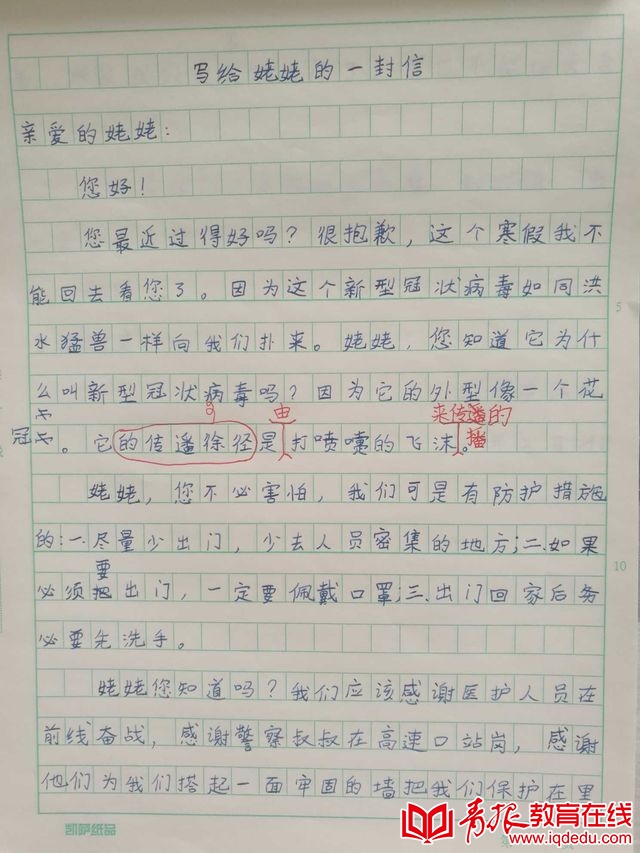 写给姥姥的一封信
亲爱的姥姥：
您好！
您最近过得好吗？很抱歉，这个寒假我不
能回去看您了。因为这个新型冠状病毒如同洪
水猛兽一样向我们扑来。姥姥，您知道它为什
么叫新型冠状病毒吗？因为它的外型像一个花
由
来传播的
冠。它的传播徐径是打喷嚏的飞沫。
播
姥姥，您不必害怕，我们可是有防护措施
的：一.尽量少出门，少去人员密集的地方；二.如果
要
必须出门，一定要佩戴口罩；三.出门回家后务
必要先洗手。
姥姥您知道吗？我们应该感谢医护人员在
前线奋战，感谢警察叔叔在高速口站岗，感谢
他们为我们搭起一面牢固的墙把我们保护在里
5
10
凯萨纸品
青报教育在线
www.iqdedu.com